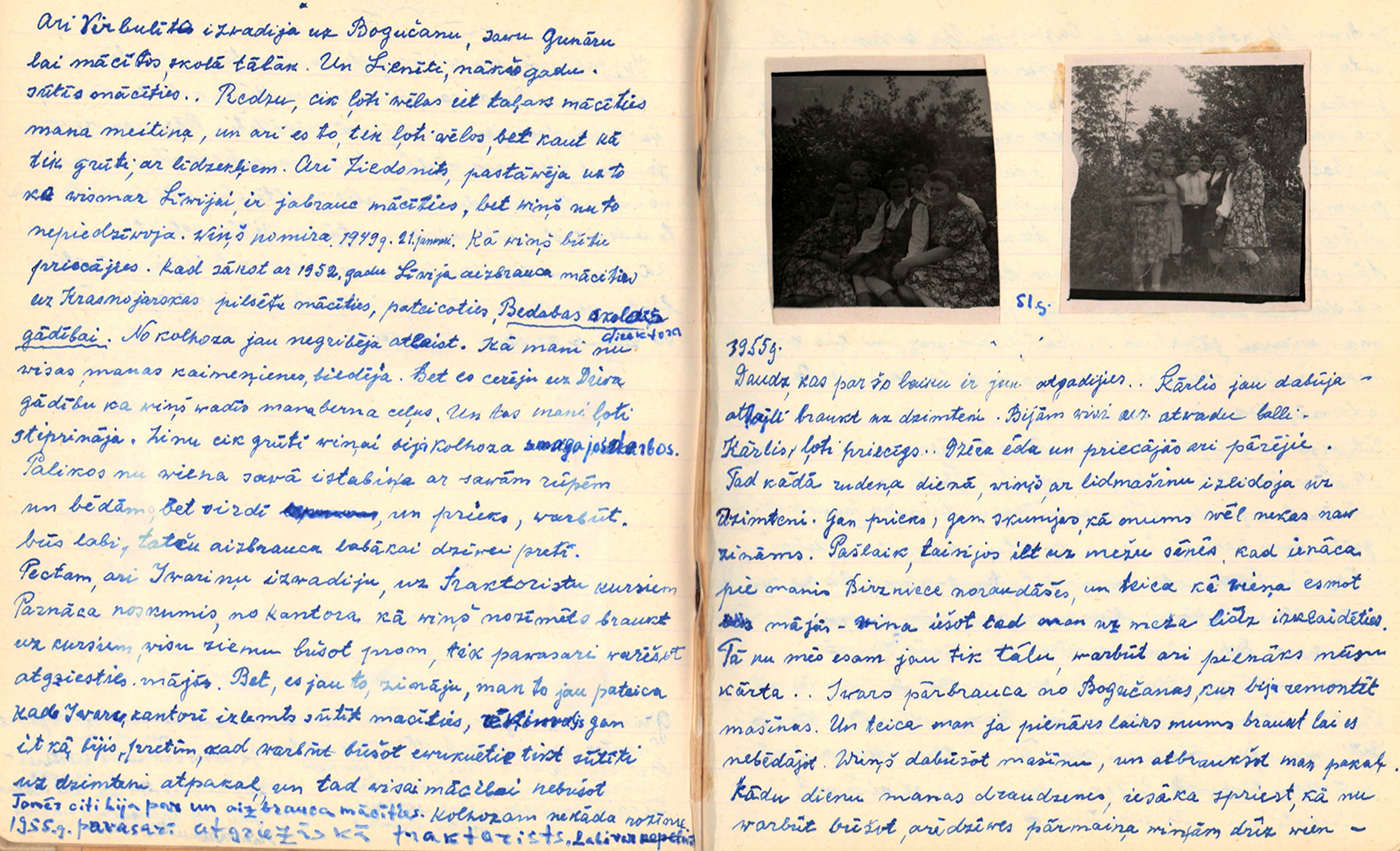 Ari Virbulite izvadija uz Bogučanu, savu Gunāru
lai mācītos, skolā tālāk. Un Lienīti, nākošo gadu.
sūtīs mācīties.. Redzu, cik ļoti vēlas iet taļak mācīties
mana meitiņa, un ari es to, tik ļoti vēlos, bet kaut kā
tik grūti, ar lidzekļiem. Ari Ziedonits, pastāvēja uz to
ka wismar Liwijai, ir jabrauc mācities, bet wiņš nu to
nepiedzīwoja. Wiņš nomira 1949g. 21. janvari. Kā wiņš būtu
priecājies. Kad sākot ar 1952. gadu Līwija aizbrauca mācīties
uz Krasnojarskas pilsētu mācīties, pateicoties, Bedabas skolas
direktora
gādībai. No kolhoza jau negribēja atlaist. Kā mani nu
wisas, manas kaimeņienes, biedēja. Bet es cerēju uz Dieva
gādību ka wiņš wadīs mana berna ceļus. Un tas mani ļoti
stiprināja. Zinu cik grūti wiņai bija kolhoza smagajos darbos.
Palikos nu wiena sawā istabiņa ar sawām rūpēm
un bēdām, bet sirdī, un prieks, warbūt.
būs labi, taču aizbrauca labākai dzīwei pretī.
Pectam, ari Iwariņu izwadiju, uz traktoristu kursiem
Parnāca noskumis, no kantora, kā wiņš nozīmēts braukt
uz kursiem, wisu ziemu būšot prom, tik pawasari warēšot
atgriesties mājās. Bet, es jau to, zināju, man to jau pateica
kad Iwaru, kantorī izlemts sūtīt macīties, gan
it kā bijis, pretim, kad warbūt būšot ewakuētie tikt sūtīti
uz dzimteni atpakaļ, un tad wisai mācībai nebūšot
Kolhozam nekāda nozīme.
Tomēr citi bija par un aizbrauca mācīties.
1955.g. pavasarī atgriezās kā traktorists. Labi var nopelnīt
51 g.
1955g.
Daudz, kas par šo laiku ir jau atgadijies.. Kārlis jau dabūja –
atļauju braukt uz dzimteni. Bijām wisi uz atwadu balli.
Kārlis, ļoti priecīgs.. Dzēra ēda un priecājās ari pārējie.
Tad kādā rudeņa dienā, wiņš, ar lidmašīnu izlidoja uz
Dzimteni. Gan prieks, gan skumjas, kā mums wēl nekas naw
zināms. Pašlaik, taisijos iet uz mežu sēnēs, kad ienāca
pie manis Birzniece noraudāšēs, un teica kā viena esmot
mājās – viņa iešot tad man uz meža līdz izklaidēties.
Tā nu mēs esam jau tik tālu, warbūt ari pienāks mūsu
kārta.. Iwars pārbrauca no Bogučanas, kur bija remontēt
mašīnas. Un teica man ja pienāks laiks mums braukt lai es
nebēdājot. Wiņš dabūšot mašīnu, un atbraukšot man pakaļ.
Kādu dienu manas draudzenes, iesāka spriest, kā nu
warbūt būšot, ari dzīwes pārmaiņa wiņām drīz wien –